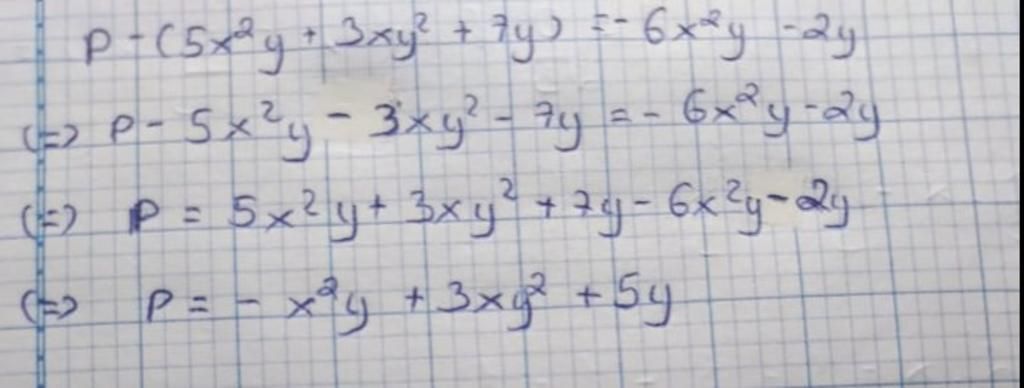 P - (5x²y + 3xy² + 7y) = - 6x²y - 2y
(=> P - 5x²y - 3xy² - 7y = - 6x²y - 2y
(=> P = 5x²y + 3xy² + 7y - 6x²y - 2y
(=> P = - x²y + 3xy² + 5y